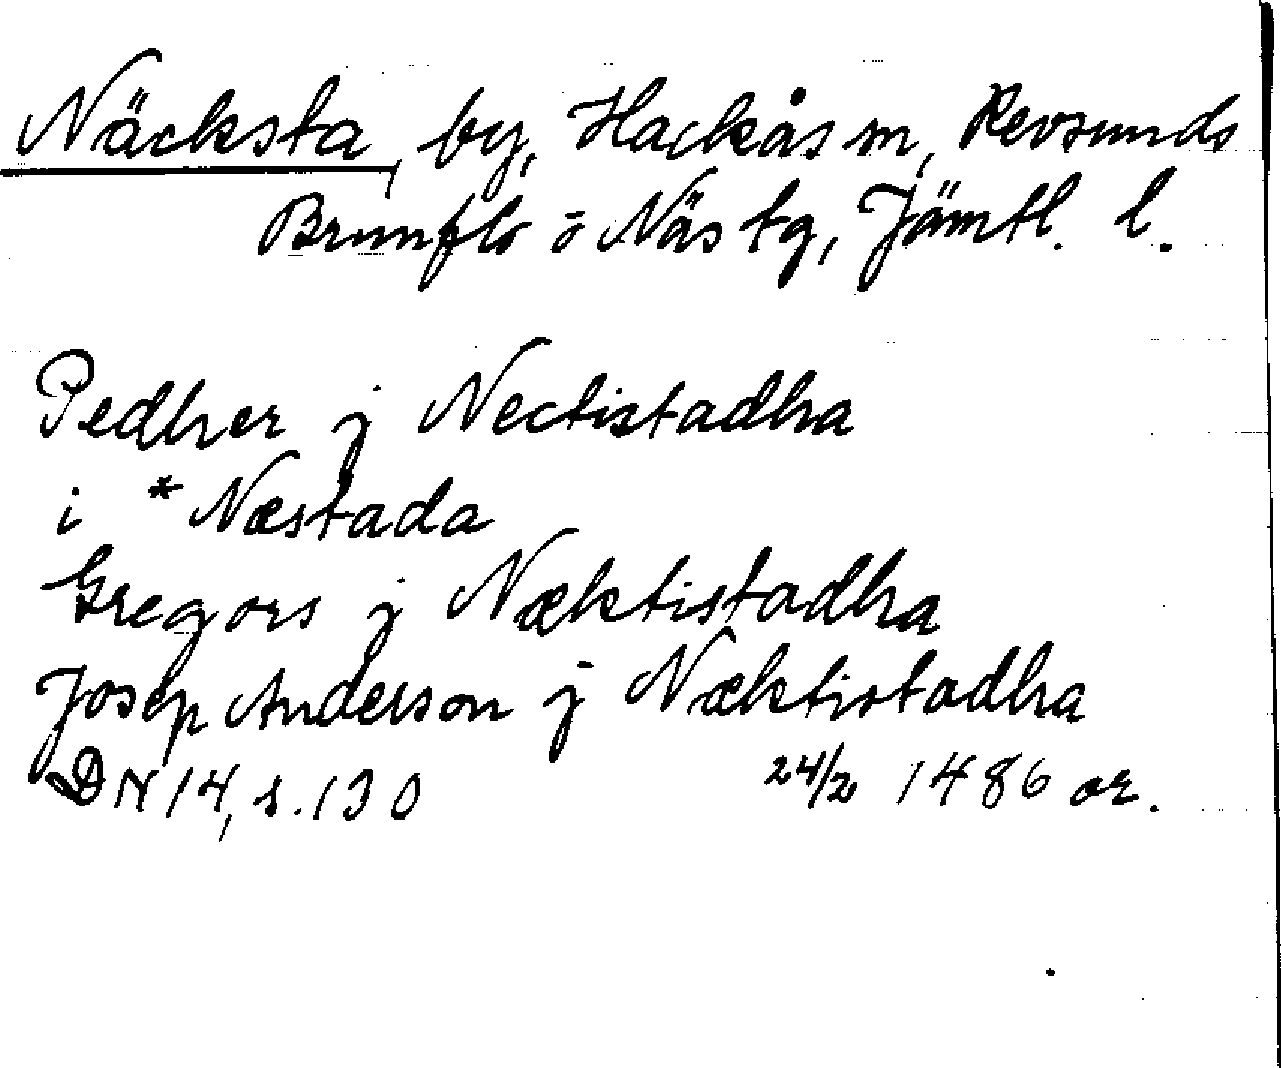 Näcksta, by, Hackås sn, Revsunds
Brunflo o Näs tg, Jämtl. l.
Pedher j Nectistadha
i *Næstada
Gregors j Næktistadha
Josep Anderson j Næktistadha
DN 14, s. 130 24/2 1486 or.